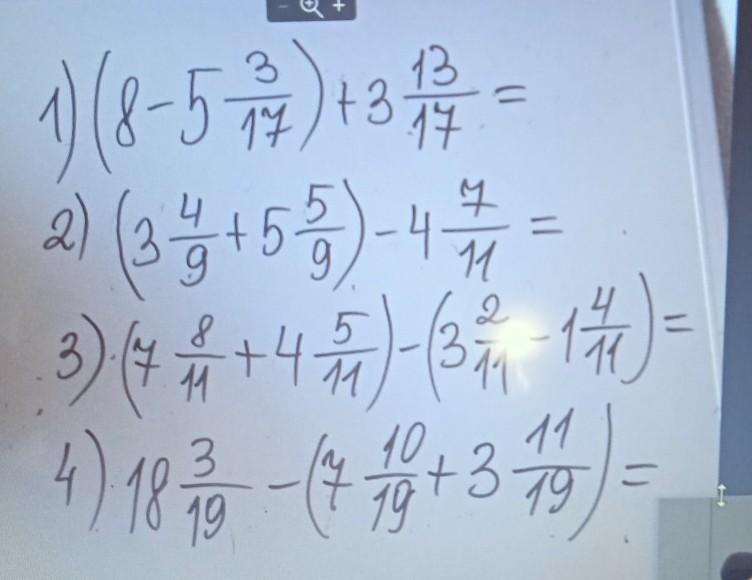 1) (8 - 5 3/17) + 3 13/17 =
2) (3 4/9 + 5 5/9) - 4 7/11 =
3) (7 8/11 + 4 5/11) - (3 2/11 - 1 4/11) =
4) 18 3/19 - (7 10/19 + 3 11/19) =